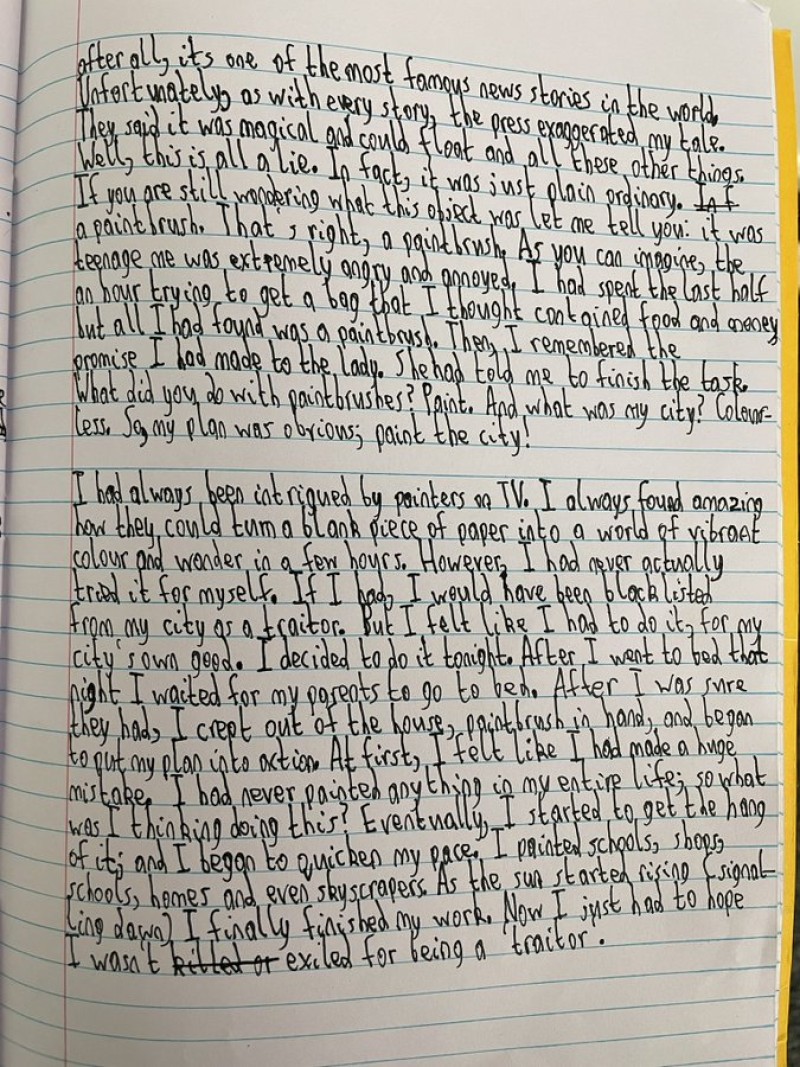 after all, its one of the most famous news stories in the world.
Unfortunately, as with every story, the press exaggerated my tale.
They said it was magical and could float and all these other things.
Well, this is all a lie. In fact, it was just plain ordinary. Inf
If you are still wondering what this object was let me tell you: it was
a paintbrush. That's right, a paintbrush. As you can imagine, the
teenage me was extremely angry and annoyed. I had spent the last half
an hour trying to get a bag that I thought contained food and money
but all I had found was a paintbrush. Then, I remembered the
promise I had made to the lady. She had told me to finish the task.
What did you do with paintbrushes? Paint. And what was my city? Colour-
less. So, my plan was obvious; paint the city!
I had always been intrigued by painters on TV. I always found amazing
how they could turn a blank piece of paper into a world of vibrant
colour and wonder in a few hours. However, I had never actually
tried it for myself. If I had, I would have been blacklisted
from my city as a traitor. But I felt like I had to do it, for my
city's own good. I decided to do it tonight. After I went to bed that
night I waited for my parents to go to bed. After I was sure
they had, I crept out of the house, paintbrush in hand, and began
to put my plan into action. At first, I felt like I had made a huge
mistake. I had never painted anything in my entire life; so what
was I thinking doing this? Eventually, I started to get the hang
of it; and I began to quicken my pace. I painted schools, shops,
schools, homes and even skyscrapers. As the sun started rising (signal-
ling dawn) I finally finished my work. Now I just had to hope
I wasn't killed or exiled for being a traitor.